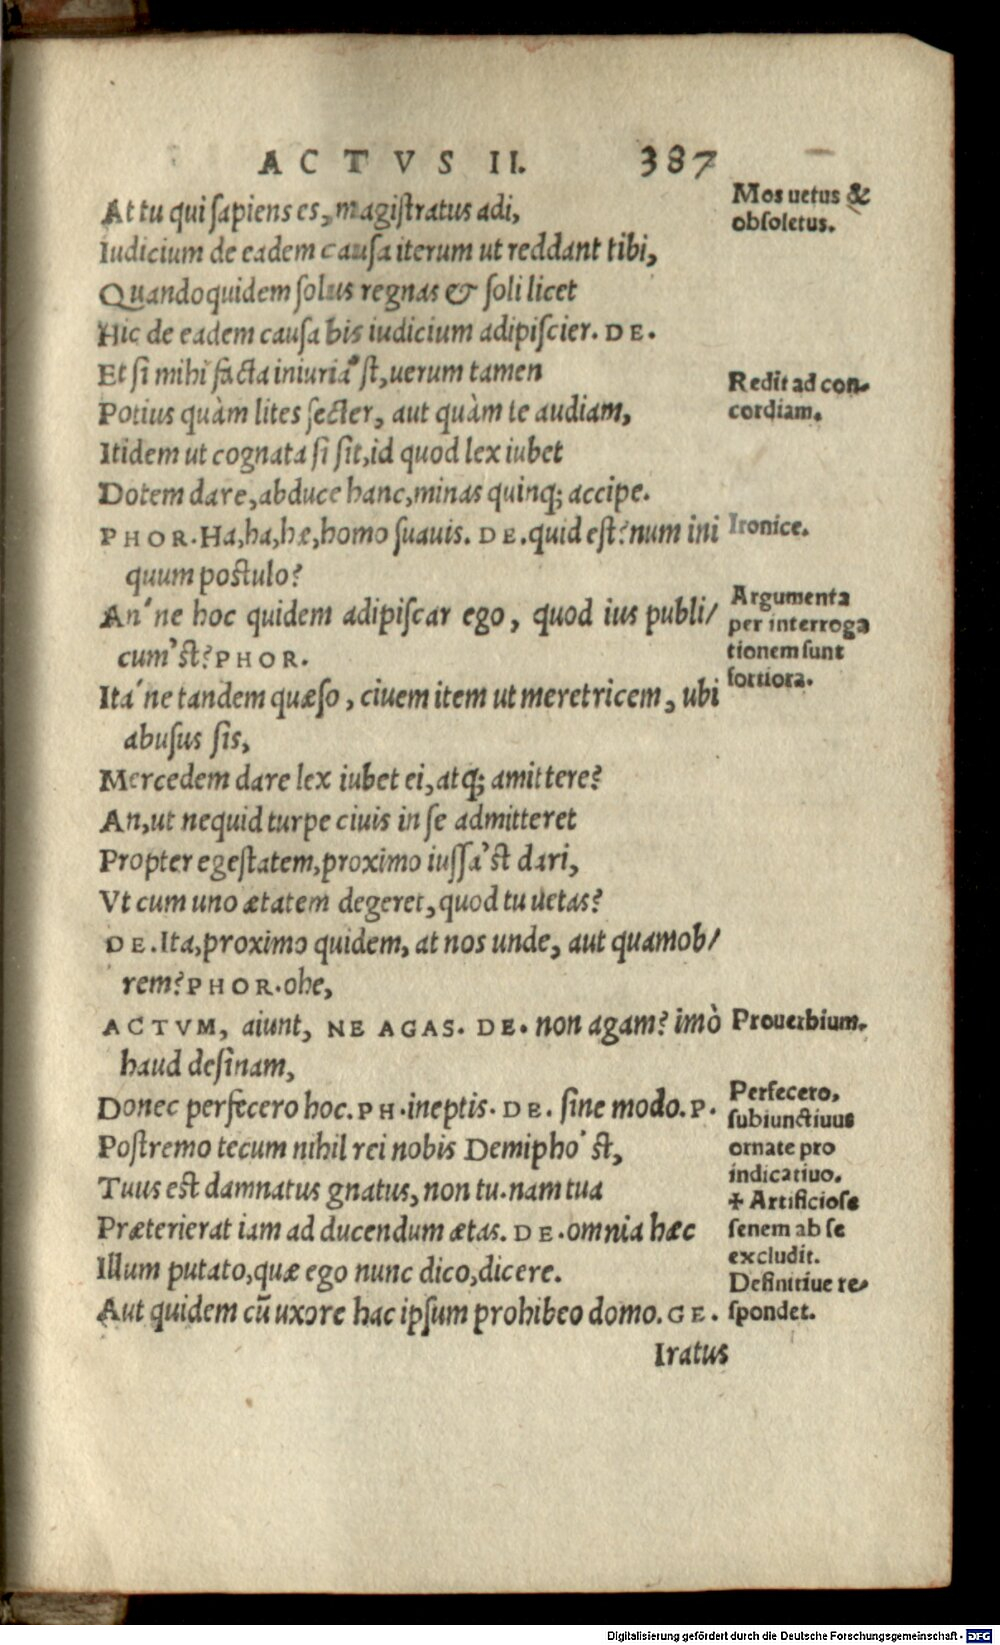 ACTVS II. 387
At tu qui ſapiens es, magiſtratus adi,
Iudicium de eadem cauſa iterum ut reddant tibi,
Quandoquidem ſolus regnas & ſoli licet
Hic de eadem cauſa bis iudicium adipiſcier. DE.
Et ſi mihi facta iniuria'ſt, uerum tamen
Potius quàm lites ſecter, aut quàm te audiam,
Itidem ut cognata ſi ſit, id quod lex iubet
Dotem dare, abduce hanc, minas quinq; accipe.
PHOR. Ha, ha, hæ, homo ſuauis. DE. quid eſt? num ini
quum poſtulo?
An'ne hoc quidem adipiſcar ego, quod ius publi/
cum'ſt? PHOR.
Ita'ne tandem quæſo, ciuem item ut meretricem, ubi
abuſus ſis,
Mercedem dare lex iubet ei, atq; amittere?
An, ut nequid turpe ciuis in ſe admitteret
Propter egeſtatem, proximo iuſſa'ſt dari,
Vt cum uno ætatem degeret, quod tu uetas?
DE. Ita, proximo quidem, at nos unde, aut quamob/
rem? PHOR. ohe,
ACTVM, aiunt, NE AGAS. DE. non agam? imò
haud deſinam,
Donec perfecero hoc. PH. ineptis. DE. ſine modo. P.
Poſtremo tecum nihil rei nobis Demipho'ſt,
Tuus eſt damnatus gnatus, non tu. nam tua
Præterierat iam ad ducendum ætas. DE. omnia hæc
Illum putato, quæ ego nunc dico, dicere.
Aut quidem cū uxore hac ipſum prohibeo domo. GE.
Iratus
Mos uetus &
obſoletus.
Redit ad con-
cordiam.
Ironice.
Argumenta
per interroga
tionem ſunt
fortiora.
Prouerbium.
Perfecero,
ſubiunctiuus
ornate pro
indicatiuo.
✠ Artificioſe
ſenem ab ſe
excludit.
Definitiue re-
ſpondet.
Digitalisierung gefördert durch die Deutsche Forschungsgemeinschaft - DFG